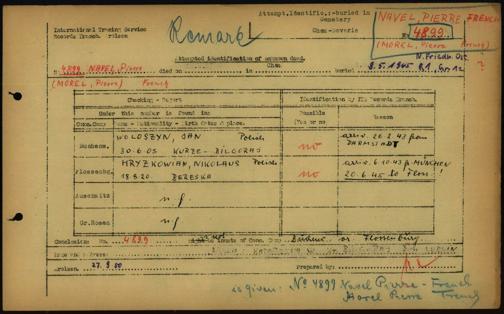 Attempt.Identific.: buried in
Cemetery
Cham-Bavaria
NAVEL, PIERRE, FRENCH
No 4899
(MOREL, Pierre French)
International Tracing Service
Records Branch
Remark!
N. Friedh. Ost
8.5.1945 81. Gr. 12
?
Attempted identification of unknown dead.
4899 NAVEL, Pierre died on in Cham buried
(MOREL, Pierre) French
Checking - Report
Identification by ITS Records Branch.
Under this number is found in:
Conc.Camp Name - Nationality - Birth date & place.
Possible
(Yes or no)
Reason
Buchenw.
WOLOSZYN, JAN Polish
30.6.05 KURZE-BILGORAJ
no
arriv. 26.2.43 from
DARMSTADT
Flossenbg.
HRYZKOWIAN, NIKOLAUS Polish
18.8.20 BERESKA
no
arriv. 6.10.43 fr. MÜNCHEN
20.6.45 to Floss.!
Auschwitz
n.f.
Gr.Rosen
n.f.
Conclusion: No. 4899 is not inmate of Conc. Camp Buchenw. or Flossenburg
Arolsen: 27.9.50
Prepared by:
as given: No 4899 Navel Pierre - French
Morel Pierre French